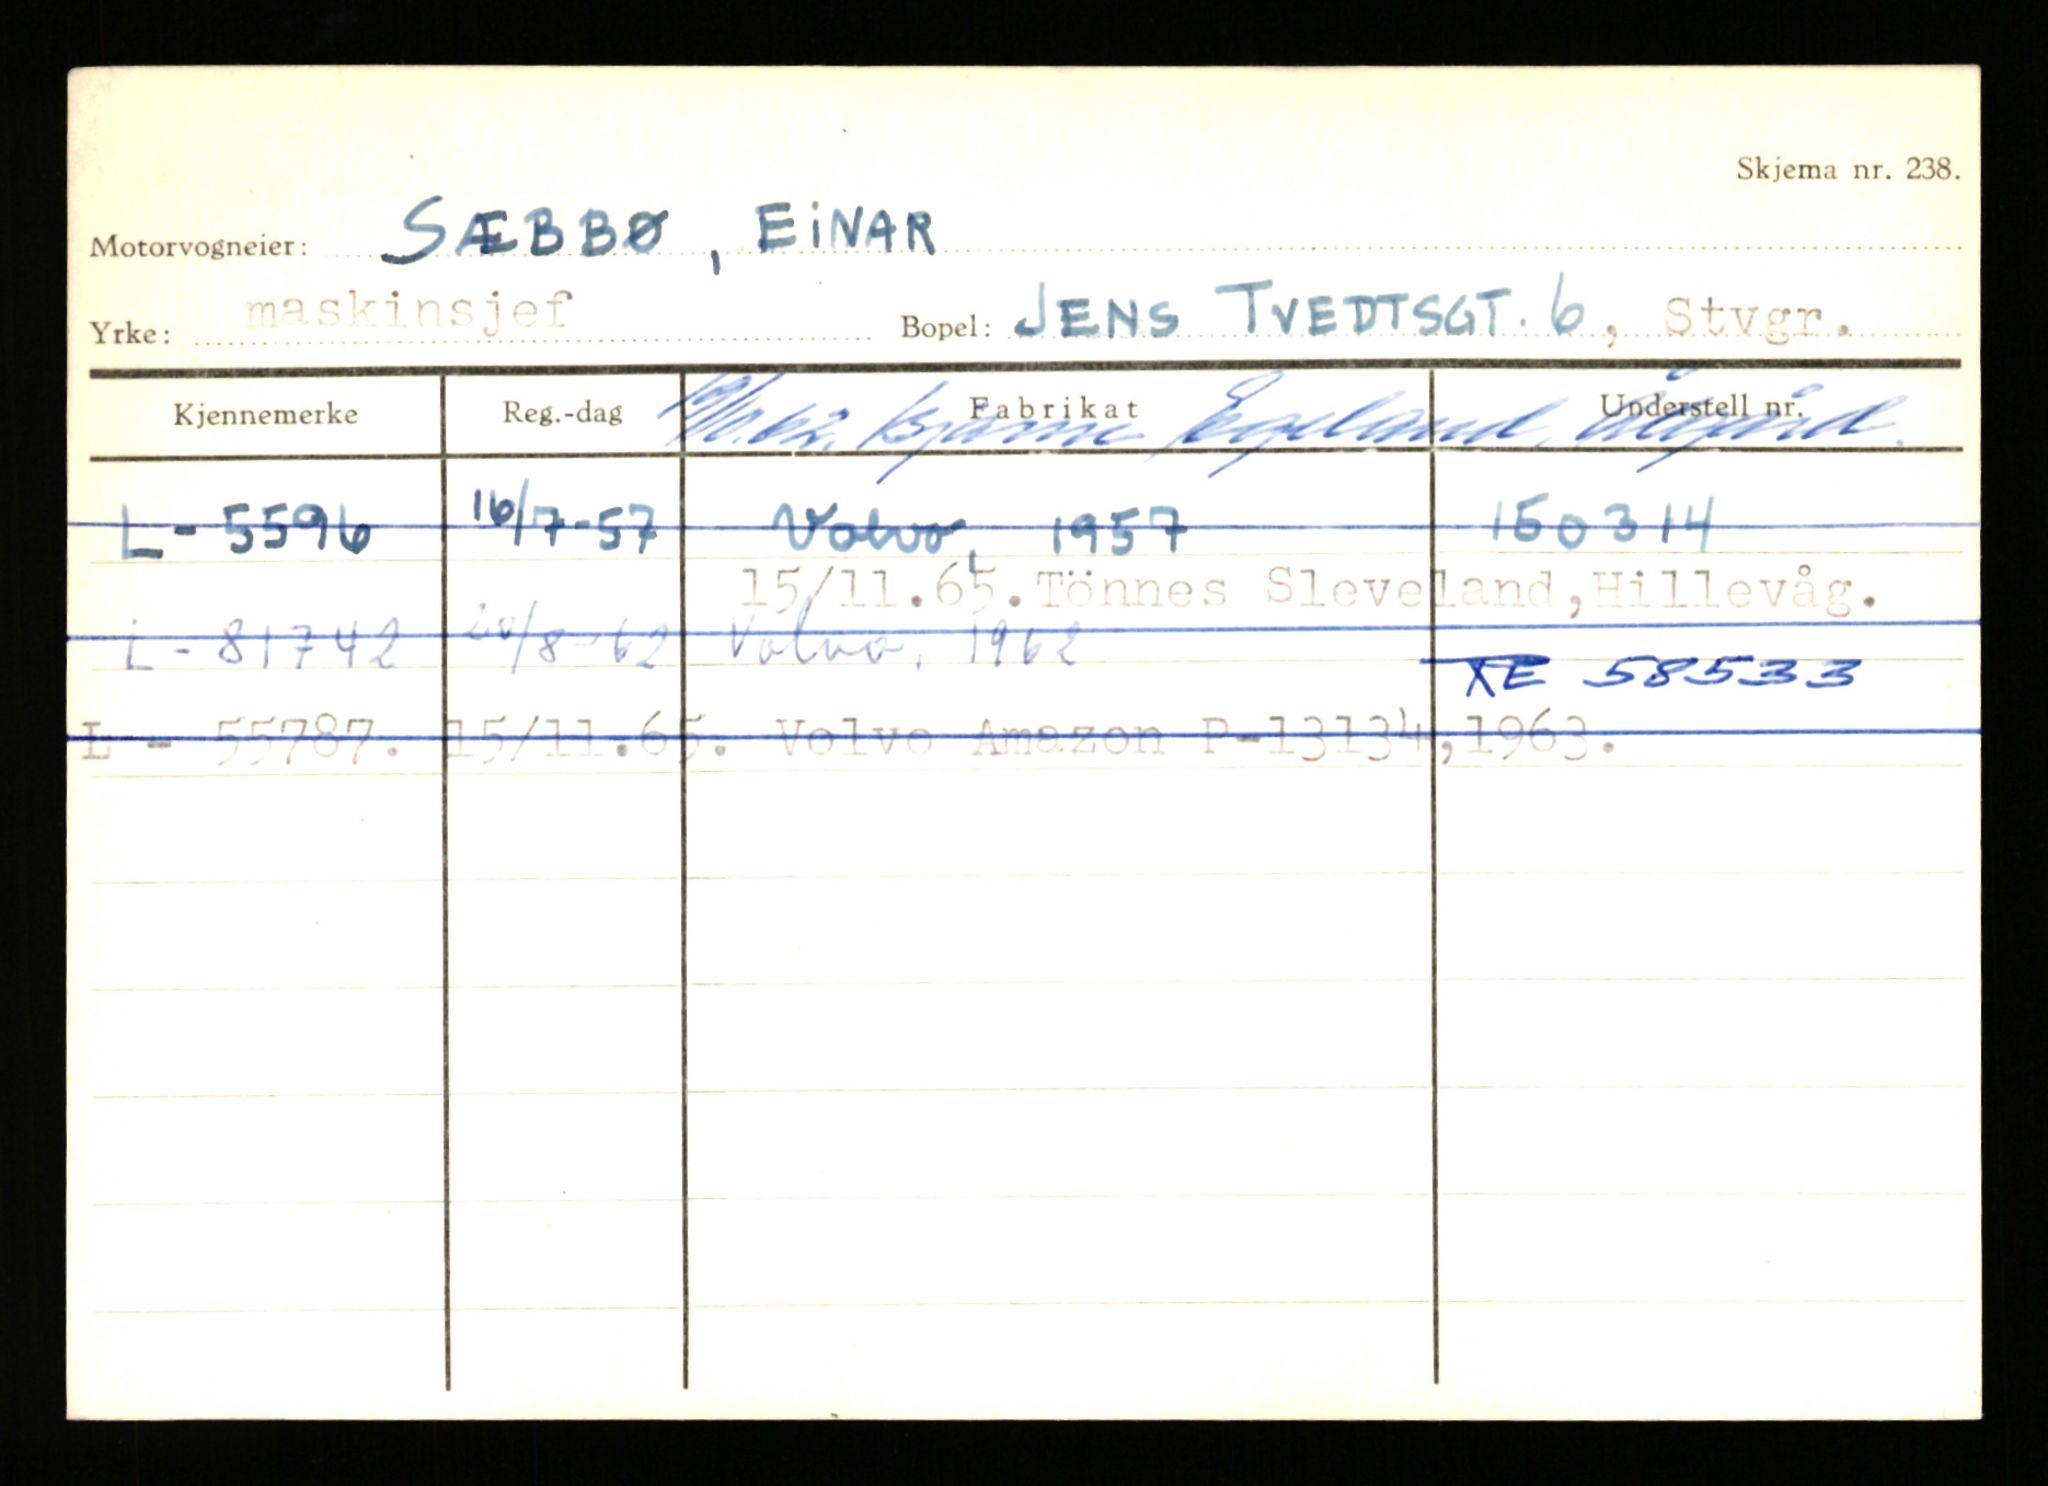 Skjema nr. 238.
Motorvogneier: SÆBBØ, EINAR
Yrke: maskinsjef Bopel: JENS TVEDTSGT. 6, Stvgr.
Kjennemerke Reg.-dag Fabrikat Understell nr.
Bjarne Egeland, Ålgård.
L - 5596 16/7-57 Volvo, 1957 150314
15/11.65. Tönnes Sleveland, Hillevåg.
L - 81742 20/8-62 Volvo, 1962
XE 58533
L - 55787. 15/11.65. Volvo Amazon P-13134, 1963.